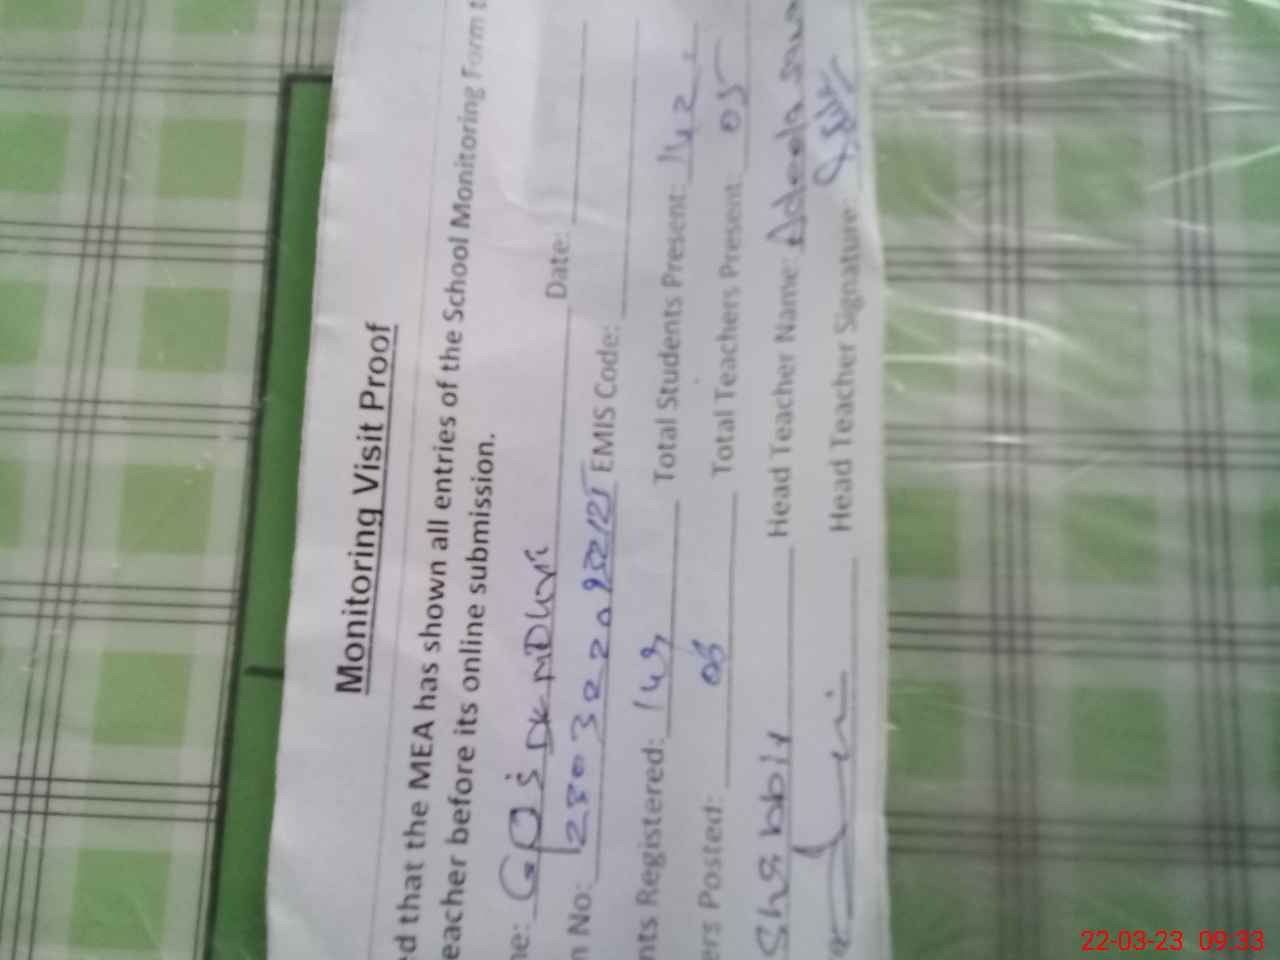 Monitoring Visit Proof
ed that the MEA has shown all entries of the School Monitoring Form t
eacher before its online submission.
me: GPS DK Date:
n No: EMIS Code:
nts Registered: 149 Total Students Present: 142
ers Posted: 05 Total Teachers Present: 05
Shabbir Head Teacher Name: Adeela
Head Teacher Signature:
22-03-23 09:33